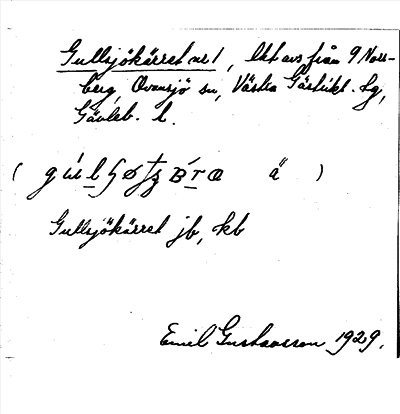 Gullsjökärret nr 1, lkt avs från 9 Norr-
berg, Ovansjö sn, Västra Gästrikl. tg,
Gävleb. l.
Gullsjökärret jb, kb
Emil Gustavsson 1929.